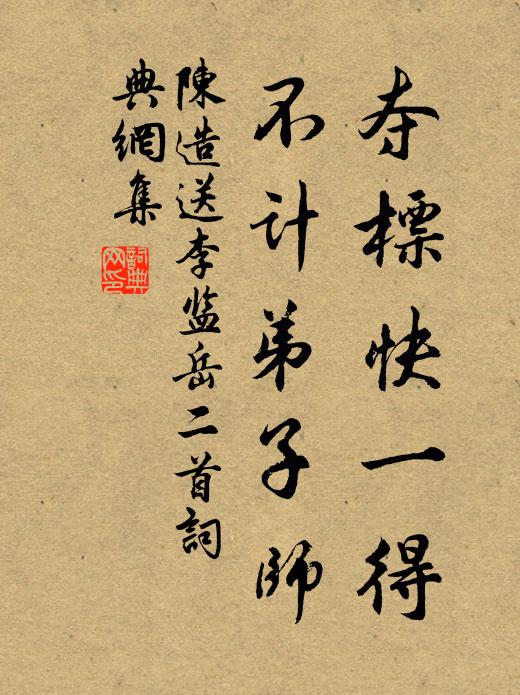 夺標快一得
不计弟子師
陳造送李监岳二首詞
典網集
詞典网印